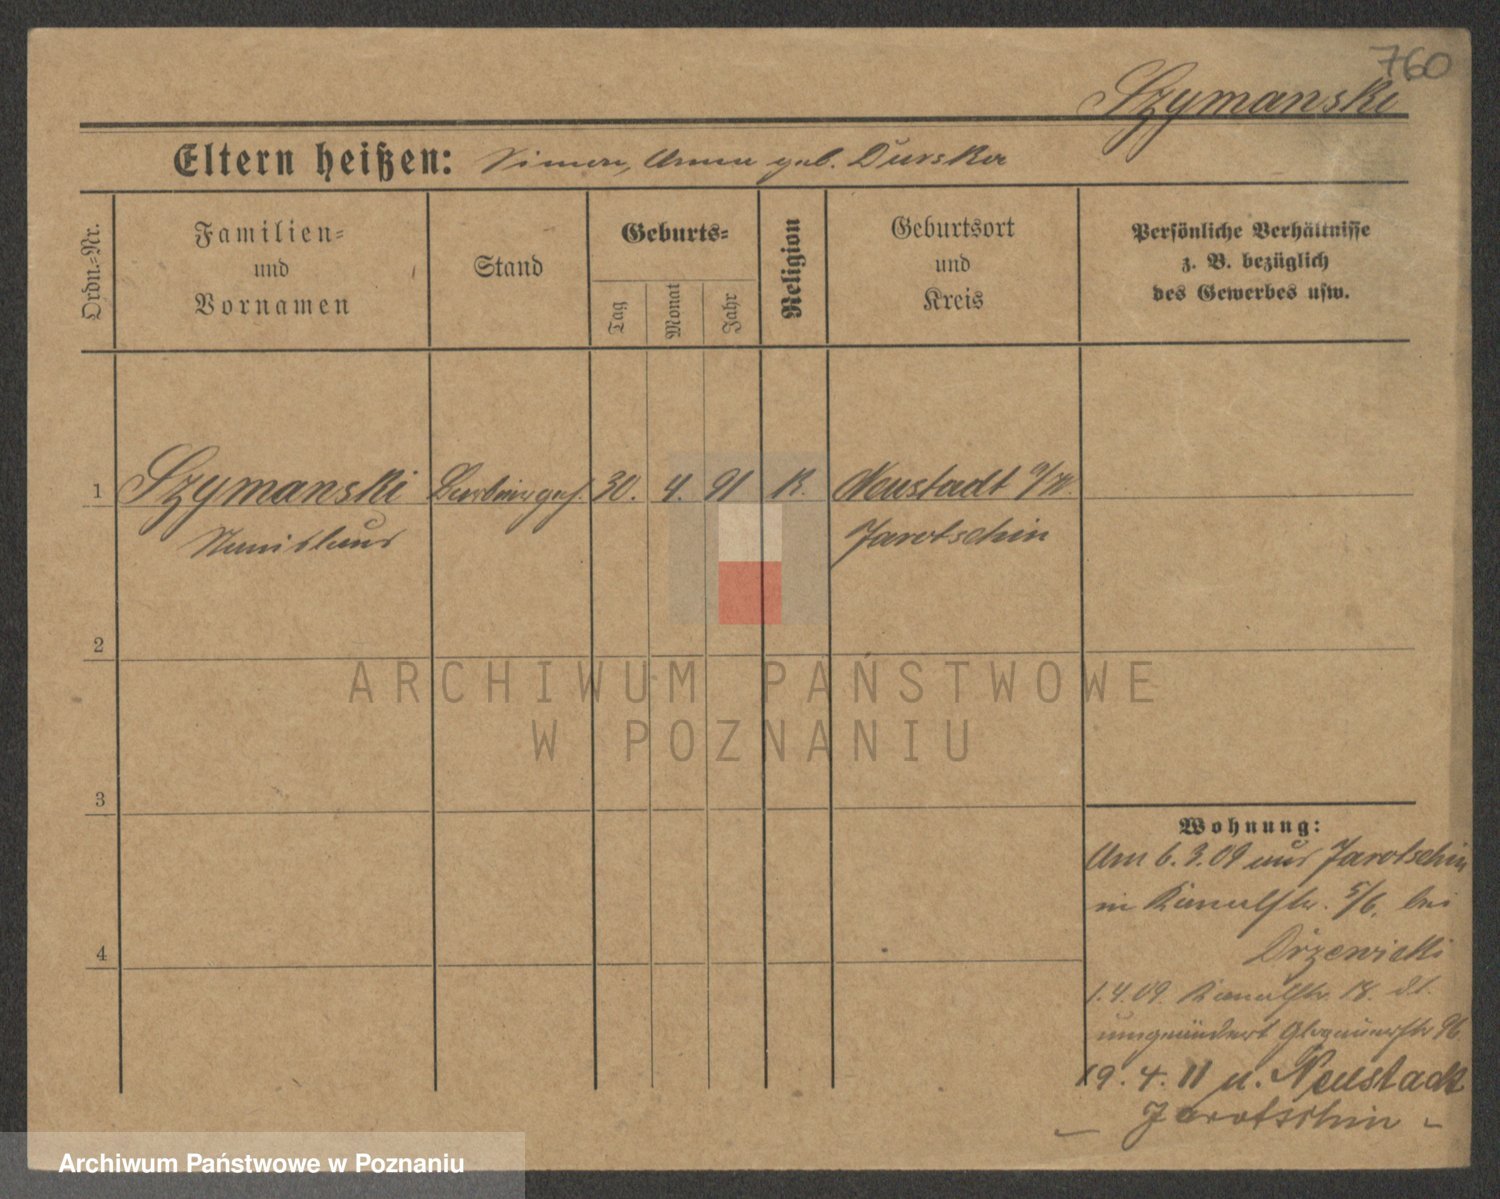 760
Szymanski
Eltern heißen: Simon, Anna geb. Durska
Ordn.-Nr.
Familien-
und
Vornamen
Stand
Geburts-
Tag
Monat
Jahr
Religion
Geburtsort
und
Kreis
Persönliche Verhältnisse
z. B. bezüglich
des Gewerbes usw.
1 Szymanski Barbiergeh. 30. 4. 91 K. Neustadt a/W.
Stanislaus Jarotschin
2
ARCHIWUM PAŃSTWOWE
W POZNANIU
3
Wohnung:
Am 6.3.09 aus Jarotschin
in Kanalstr. 5/6. bei
Drzewiecki
4
1.4.09. Kanalstr. 18. dt.
umgeändert Glogauerstr 96
19.4.11 n. Neustadt
Jarotschin
Archiwum Państwowe w Poznaniu